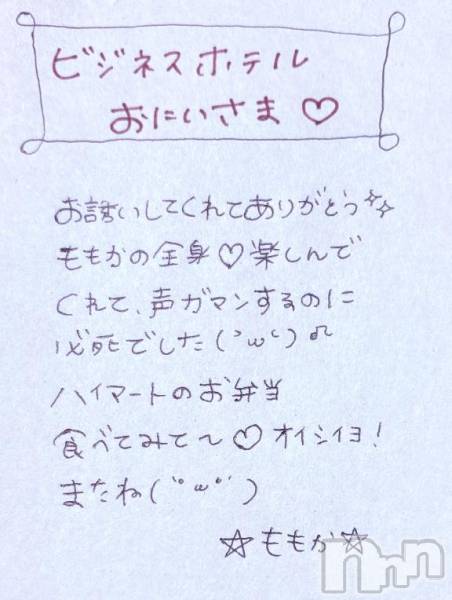 ビジネスホテル
おにいさま♡
お誘いしてくれてありがとう✨
ももかの全身♡楽しんで
くれて、声ガマンするのに
必死でした(´ω`)♫
ハイマートのお弁当
食べてみて〜♡オイシイヨ!
またね(´°ω°`)
☆ももか☆
nnn